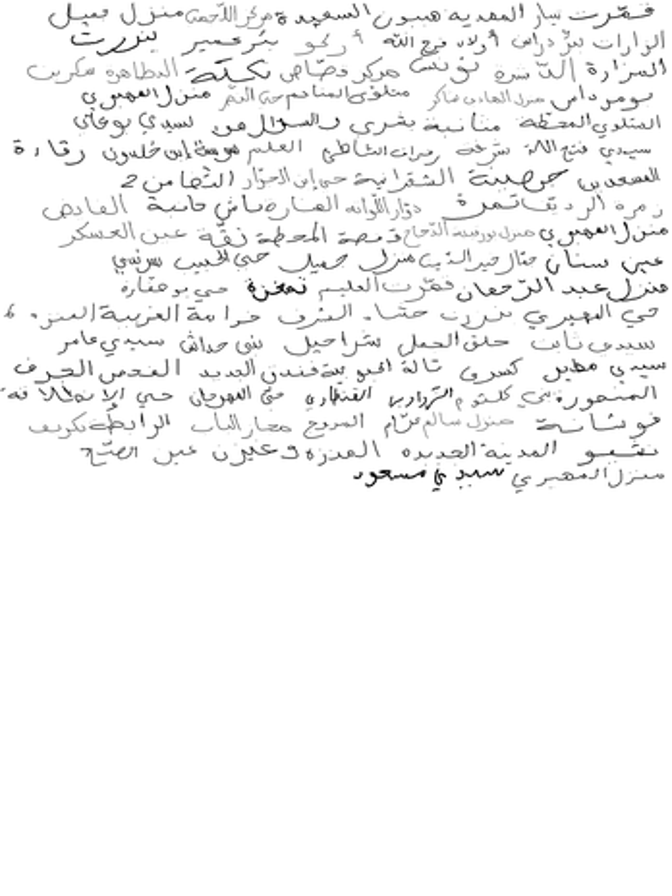 قمّرت تيار المهدية هيبون السعيدة مركز اللاحمي منزل جميل
الزارات بئر دراس أولاد فرج الله أركو بئر عمير بنزرت
السرارة الدّشرة تونس مركز قصّاص تكلسة البطاهرة سكرين
بومرداس منزل الهادي شاكر متلوي المناجم حي النصر منزل المهيري
المتلوي المحطة منانية بشرى رأس سيدي بوعلي
سيدي فتح الله شرقة زهرات الشاطئ العليم هرميسة ابن خلدون رقادة
السعيدين خزينة الشقرانية حي ابن الجزار التضامن 2
زمرة الرديف تمرة دوّار اللواتة المنارة باش حانبة الفايض
منزل المهيري منزل بورقيبة الدخاج قفصة المحطة نقّة عين العسكر
عين سنان جمّال خير الدين منزل جميل حي الحبيب برنسي
منزل عبد الرّحمان قمّرت العليم تمغزة حي بوصفارة
حي المهيري بنزرت حشاد الشرف خزامة الغربية المنزه 6
سيدي ثابت حلق الجمل شراحيل بني حداش سيدي عامر
سيدي مطير كسرى تالة الجنوبية فندق الجديد القدس الجرف
المنصورة بني كلثوم التزوارين القنطاوي حي المهرجان حي الانطلاقة
فوشانة منزل سالم عزّام المروج مجاز الباب الرابطة تكريف
نقبو المدينة الجديدة المنزه وغيرن عين الصبح
منزل المهيري سيدي مسعود